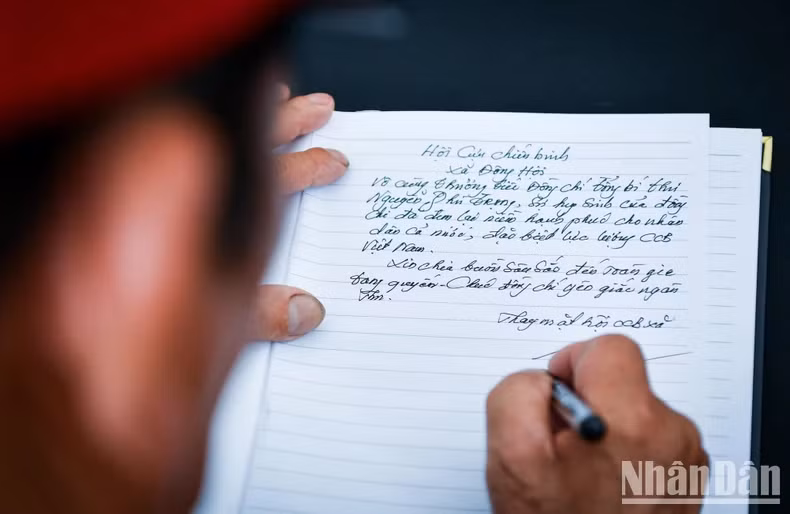 Hội Cựu chiến binh
xã Đông Hội
Vô cùng thương tiếc Đồng chí Tổng bí thư
Nguyễn Phú Trọng, sự hy sinh của đồng
chí đã đem lại niềm hạnh phúc cho nhân
dân cả nước, đặc biệt lực lượng CCB
Việt Nam.
Xin chia buồn sâu sắc đến toàn gia
tang quyến - Chúc đồng chí yên giấc ngàn
thu.
Thay mặt hội CCB xã
NhânDân